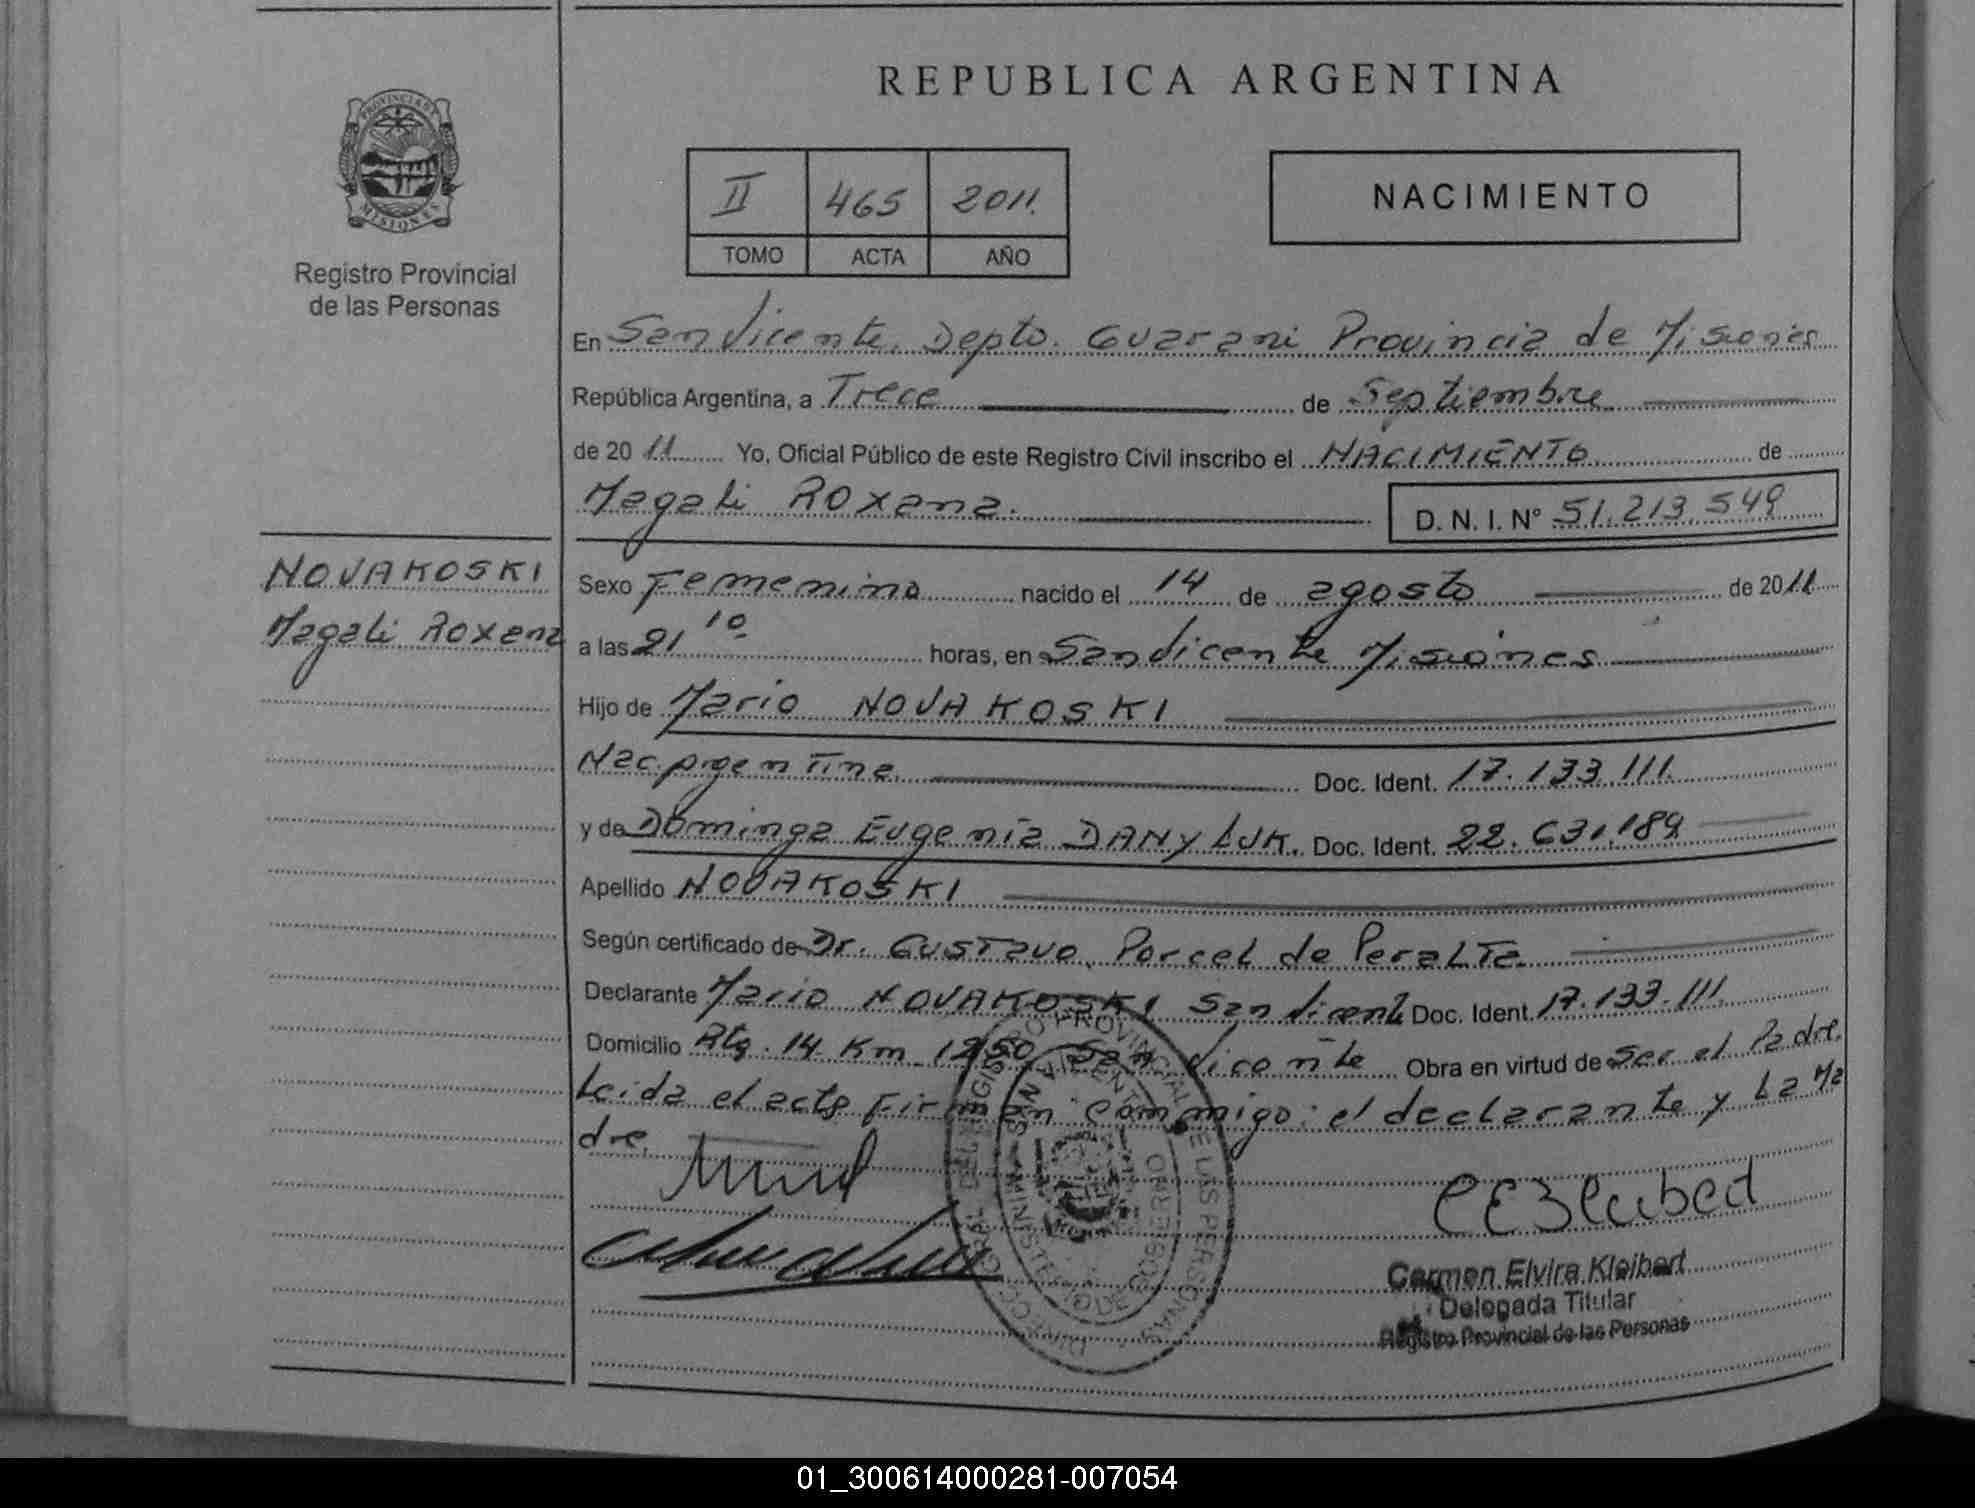 REPUBLICA ARGENTINA
PROVINCIA DE
MISIONES
Registro Provincial
de las Personas
II 465 2011.
TOMO ACTA AÑO
NACIMIENTO
En San Vicente, Depto. Guarani Provincia de Misiones
República Argentina, a Trece de Septiembre
de 2011 Yo, Oficial Público de este Registro Civil inscribo el NACIMIENTO de
Magali Roxana. D. N. I. N° 51.213.549
NOVAKOSKI
Magali Roxana
Sexo Femenino nacido el 14 de agosto de 2011
a las 21 10 horas, en San Vicente Misiones
Hijo de Mario NOVAKOSKI
Nac. Argentina Doc. Ident. 17.133.111.
y de Dominga Eugenia DANYLUK. Doc. Ident. 22.631.189
Apellido NOVAKOSKI
Según certificado de Dr. Gustavo Porcel de Peralta
Declarante Mario NOVAKOSKI San Vicente Doc. Ident. 17.133.111.
Domicilio Rta. 14 Km 1250 San Vicente Obra en virtud de ser el Padre.
Leida el acta Firman conmigo: el declarante y La Ma
dre.
REGISTRO PROVINCIAL DE LAS PERSONAS
SAN VICENTE
MINISTERIO DE GOBIERNO
Carmen Elvira Kleibert
Delegada Titular
Registro Provincial de las Personas
01_300614000281-007054